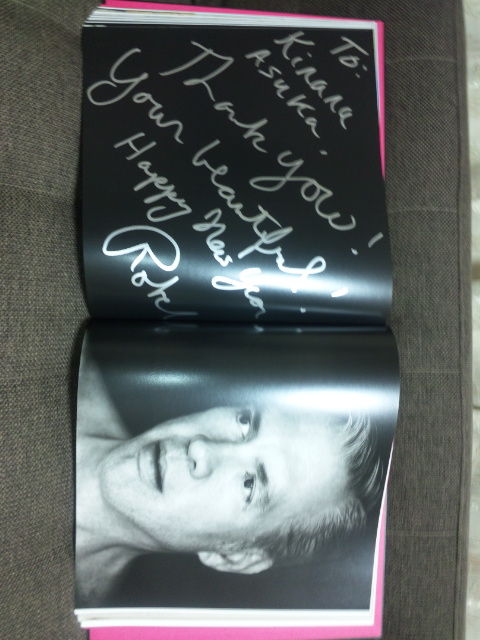 To:
Asuka.
Thank you!
Your beautiful!!
Happy New Year